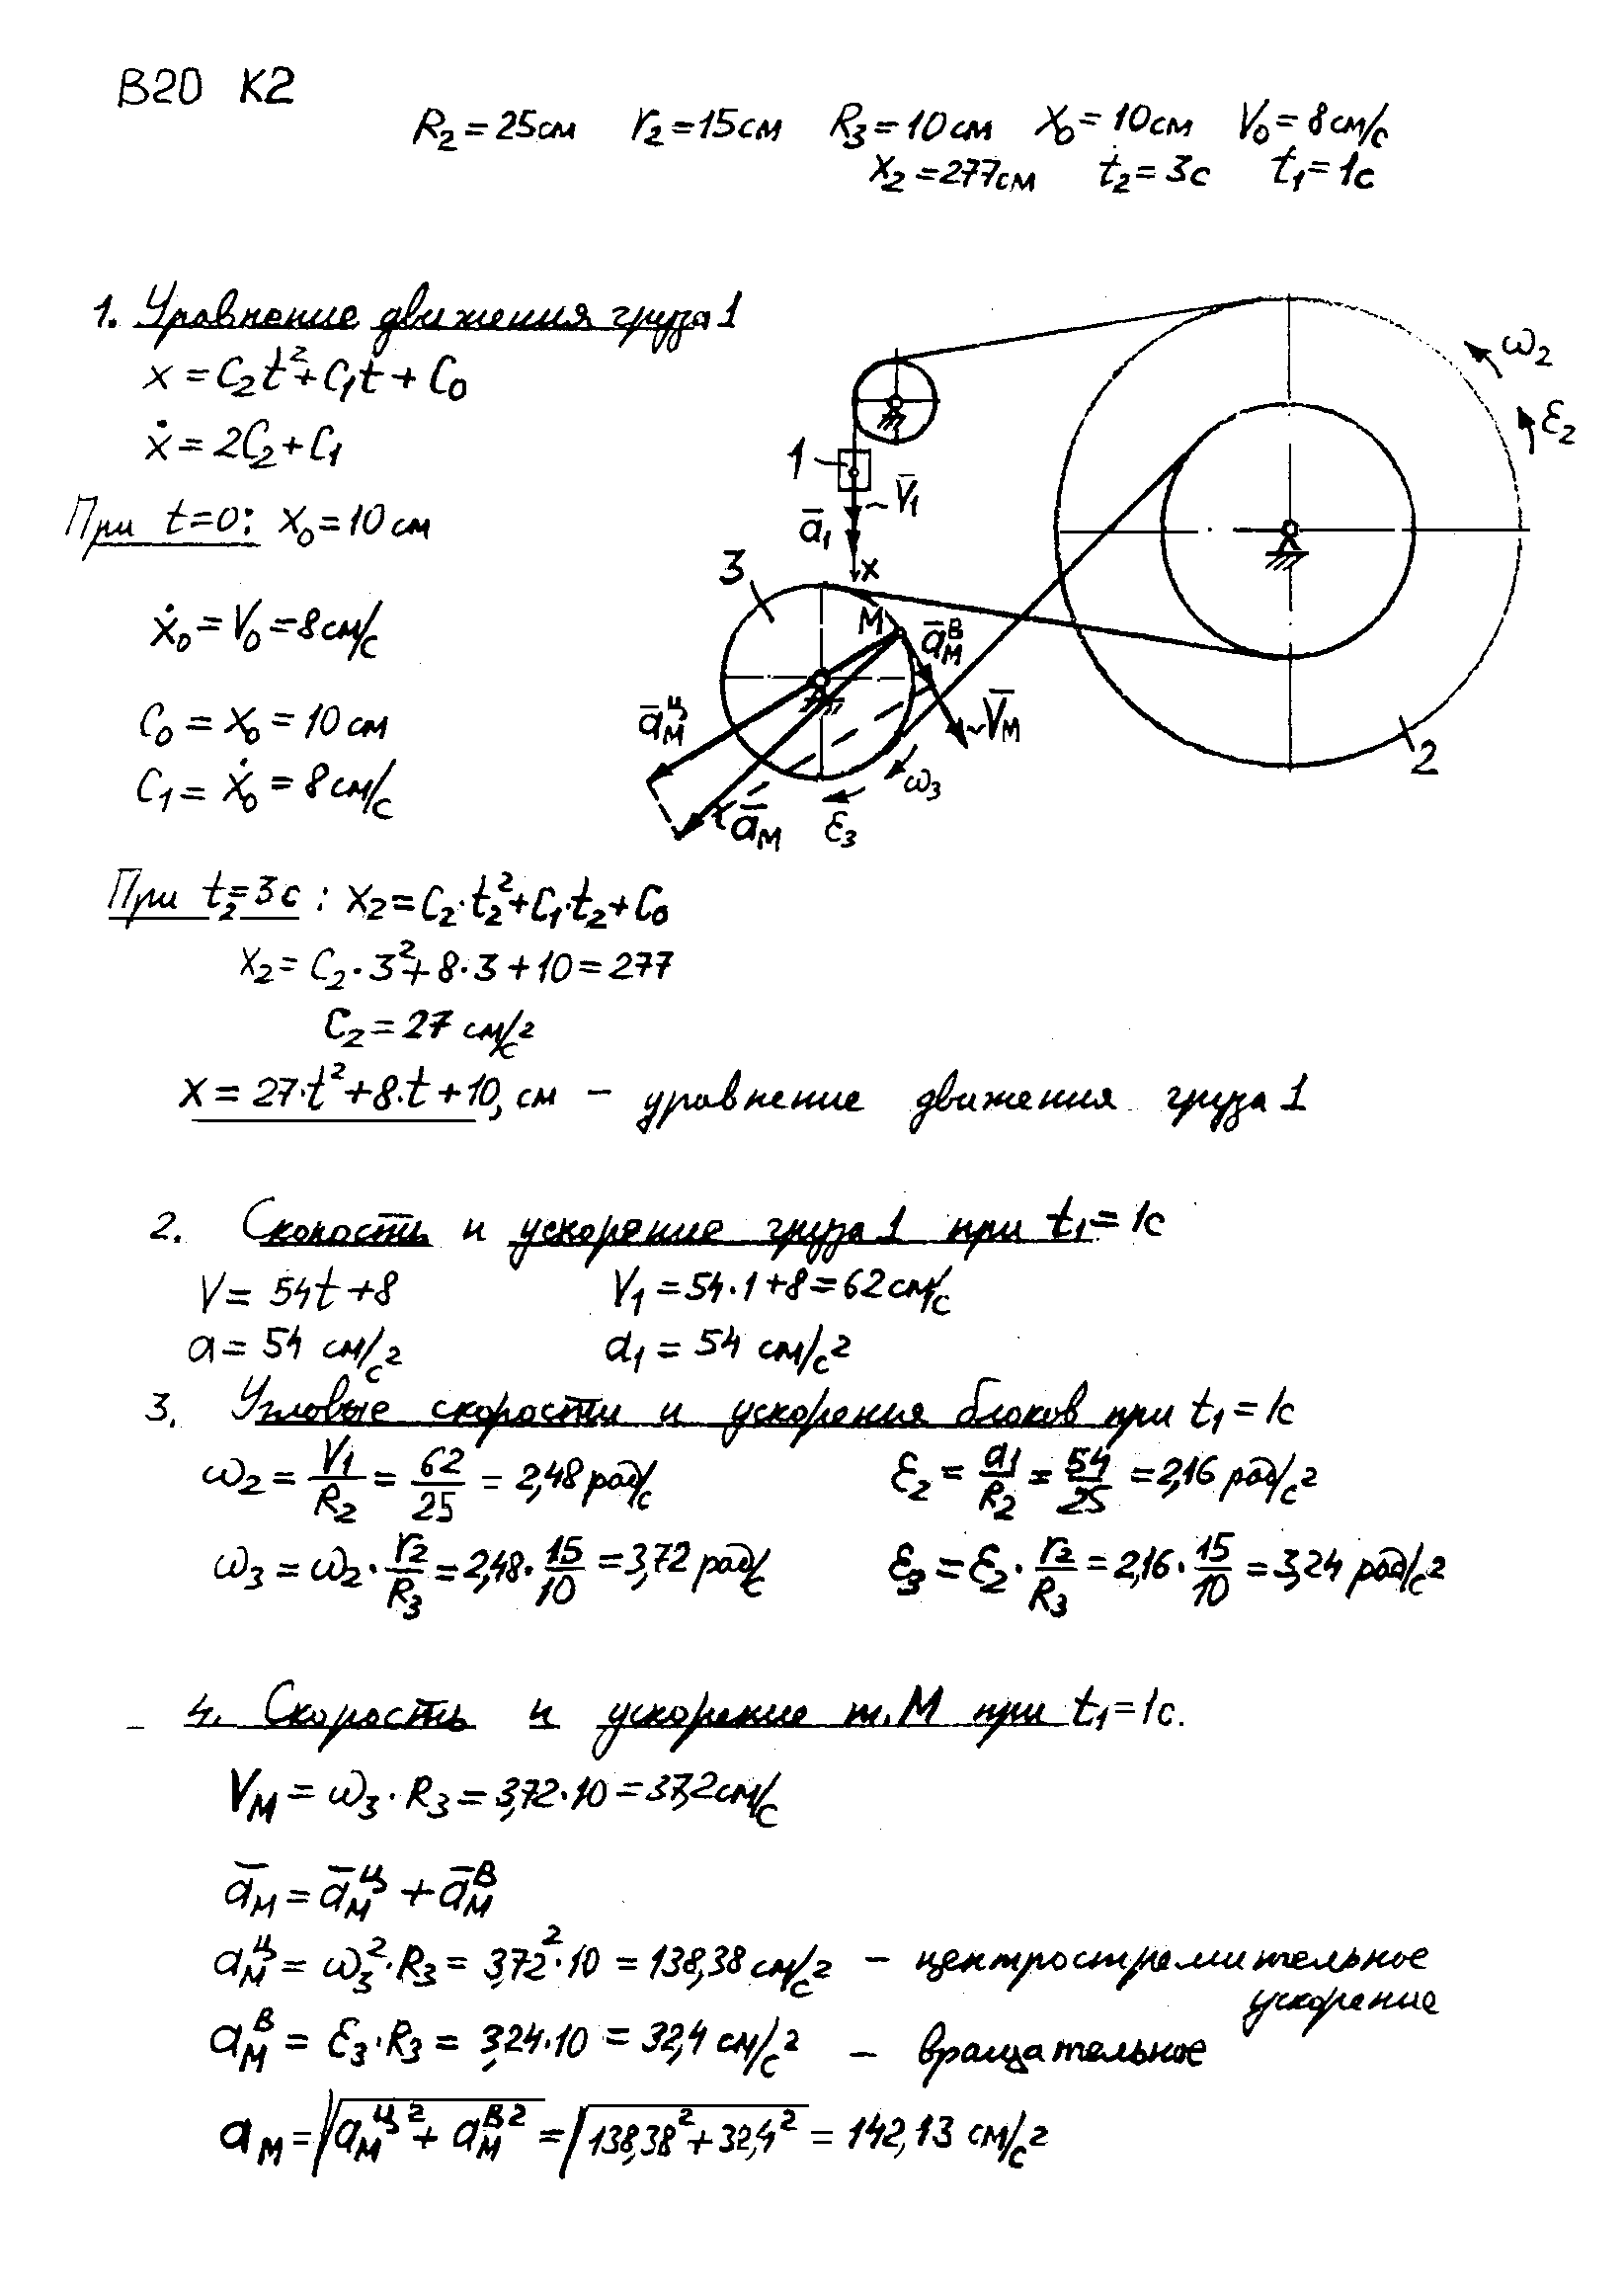 B20 K2
R₂ = 25см r₂ = 15см R₃ = 10см X₀ = 10см V₀ = 8см/с
X₂ = 277см t₂ = 3с t₁ = 1с
1. Уравнение движения груза 1
x = C₂t² + C₁t + C₀
ẋ = 2C₂ + C₁
При t=0: X₀ = 10 см
ẋ₀ = V₀ = 8см/с
C₀ = X₀ = 10 см
C₁ = ẋ₀ = 8 см/с
ω₂
ε₂
1
V̄₁
ā₁
x
3
M
ā_M^в
ā_M^ц
V̄_M
ω₃
ε₃
ā_M
2
При t₂=3с : X₂ = C₂·t₂² + C₁·t₂ + C₀
X₂ = C₂·3² + 8·3 + 10 = 277
C₂ = 27 см/с²
X = 27·t² + 8·t + 10, см – уравнение движения груза 1
2. Скорость и ускорение груза 1 при t₁ = 1с
V = 54t + 8 V₁ = 54·1 + 8 = 62см/с
a = 54 см/с² a₁ = 54 см/с²
3. Угловые скорости и ускорения блоков при t₁ = 1с
ω₂ = V₁/R₂ = 62/25 = 2,48 рад/с ε₂ = a₁/R₂ = 54/25 = 2,16 рад/с²
ω₃ = ω₂·r₂/R₃ = 2,48·15/10 = 3,72 рад/с ε₃ = ε₂·r₂/R₃ = 2,16·15/10 = 3,24 рад/с²
4. Скорость и ускорение т.М при t₁ = 1с.
V_M = ω₃·R₃ = 3,72·10 = 37,2см/с
ā_M = ā_M^ц + ā_M^в
a_M^ц = ω₃²·R₃ = 3,72²·10 = 138,38 см/с² – центростремительное
ускорение
a_M^в = ε₃·R₃ = 3,24·10 = 32,4 см/с² – вращательное
a_M = √(a_M^ц² + a_M^в²) = √(138,38² + 32,4²) = 142,13 см/с²